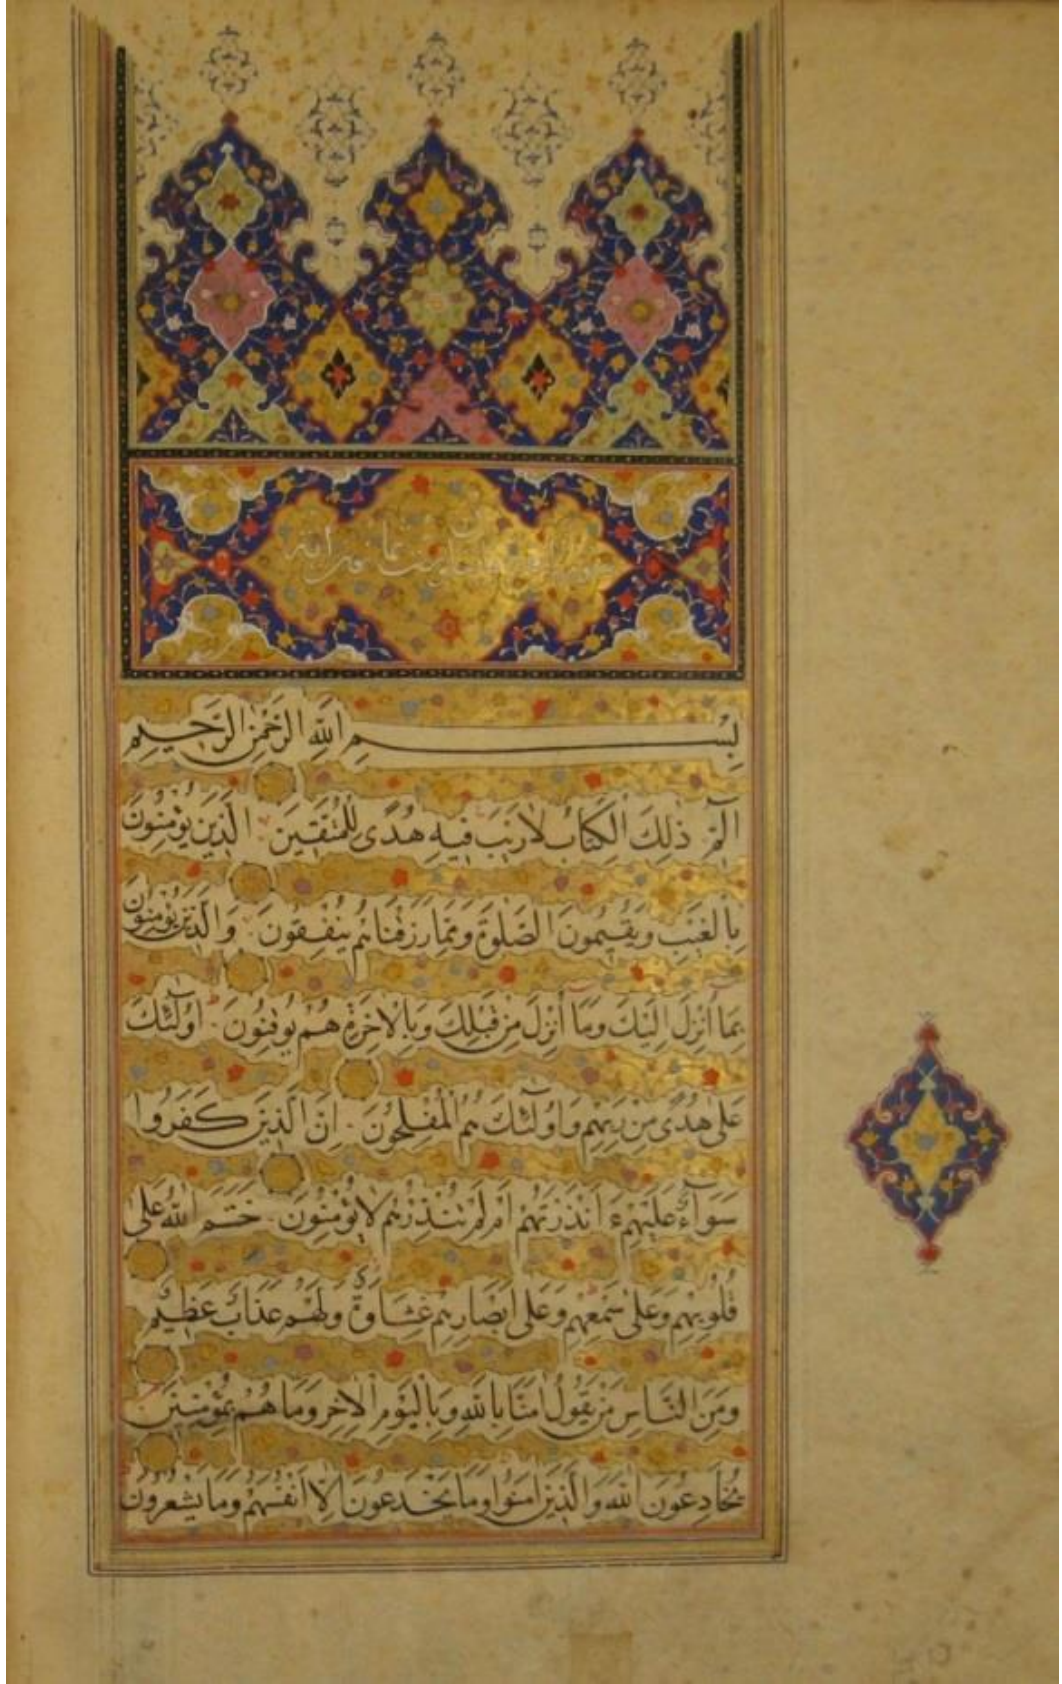 بِسْمِ اللهِ الرَّحْمٰنِ الرَّحِيمِ
الٓمٓ ذٰلِكَ الْكِتَابُ لَا رَيْبَ فِيهِ هُدًى لِلْمُتَّقِينَ الَّذِينَ يُؤْمِنُونَ
بِالْغَيْبِ وَيُقِيمُونَ الصَّلٰوةَ وَمِمَّا رَزَقْنَاهُمْ يُنْفِقُونَ وَالَّذِينَ يُؤْمِنُونَ
بِمَا أُنْزِلَ إِلَيْكَ وَمَا أُنْزِلَ مِنْ قَبْلِكَ وَبِالْاٰخِرَةِ هُمْ يُوقِنُونَ اُولٰٓئِكَ
عَلٰى هُدًى مِنْ رَبِّهِمْ وَاُولٰٓئِكَ هُمُ الْمُفْلِحُونَ اِنَّ الَّذِينَ كَفَرُوا
سَوَآءٌ عَلَيْهِمْ ءَاَنْذَرْتَهُمْ اَمْ لَمْ تُنْذِرْهُمْ لَا يُؤْمِنُونَ خَتَمَ اللهُ عَلٰى
قُلُوبِهِمْ وَعَلٰى سَمْعِهِمْ وَعَلٰى اَبْصَارِهِمْ غِشَاوَةٌ وَلَهُمْ عَذَابٌ عَظِيمٌ
وَمِنَ النَّاسِ مَنْ يَقُولُ اٰمَنَّا بِاللهِ وَبِالْيَوْمِ الْاٰخِرِ وَمَا هُمْ بِمُؤْمِنِينَ
يُخَادِعُونَ اللهَ وَالَّذِينَ اٰمَنُوا وَمَا يَخْدَعُونَ اِلَّا اَنْفُسَهُمْ وَمَا يَشْعُرُونَ